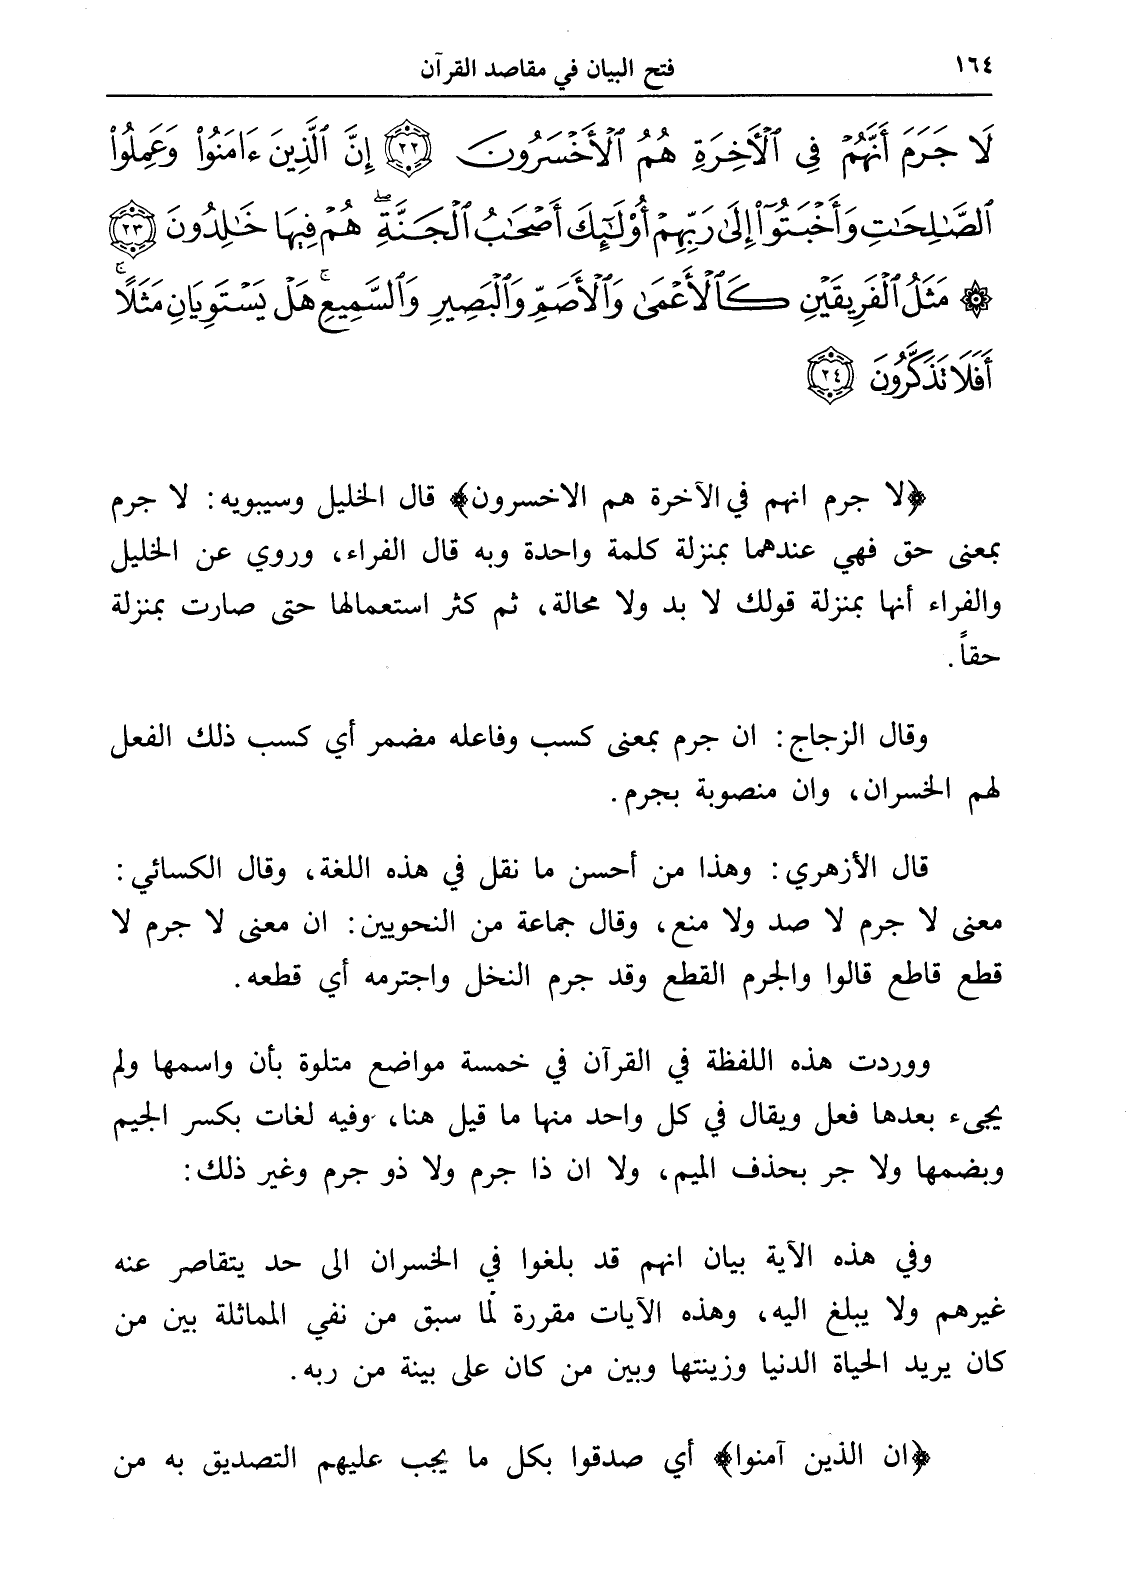 ١٦٤
فتح البيان في مقاصد القرآن
لَا جَرَمَ أَنَّهُمْ فِي ٱلْأَخِرَةِ هُمُ ٱلْأَخْسَرُونَ ٢٢ إِنَّ ٱلَّذِينَ ءَامَنُوا۟ وَعَمِلُوا۟
ٱلصَّـٰلِحَـٰتِ وَأَخْبَتُوٓا۟ إِلَىٰ رَبِّهِمْ أُو۟لَـٰٓئِكَ أَصْحَـٰبُ ٱلْجَنَّةِ ۖ هُمْ فِيهَا خَـٰلِدُونَ ٢٣
۞ مَثَلُ ٱلْفَرِيقَيْنِ كَٱلْأَعْمَىٰ وَٱلْأَصَمِّ وَٱلْبَصِيرِ وَٱلسَّمِيعِ ۚ هَلْ يَسْتَوِيَانِ مَثَلًا ۚ
أَفَلَا تَذَكَّرُونَ ٢٤
﴿لا جرم انهم في الآخرة هم الاخسرون﴾ قال الخليل وسيبويه: لا جرم
بمعنى حق فهي عندهما بمنزلة كلمة واحدة وبه قال الفراء، وروي عن الخليل
والفراء أنها بمنزلة قولك لا بد ولا محالة، ثم كثر استعمالها حتى صارت بمنزلة
حقاً.
وقال الزجاج: ان جرم بمعنى كسب وفاعله مضمر أي كسب ذلك الفعل
لهم الخسران، وان منصوبة بجرم.
قال الأزهري: وهذا من أحسن ما نقل في هذه اللغة، وقال الكسائي:
معنى لا جرم لا صد ولا منع، وقال جماعة من النحويين: ان معنى لا جرم لا
قطع قاطع قالوا والجرم القطع وقد جرم النخل واجترمه أي قطعه.
ووردت هذه اللفظة في القرآن في خمسة مواضع متلوة بأن واسمها ولم
يجيء بعدها فعل ويقال في كل واحد منها ما قيل هنا، وفيه لغات بكسر الجيم
وبضمها ولا جر بحذف الميم، ولا ان ذا جرم ولا ذو جرم وغير ذلك:
وفي هذه الآية بيان انهم قد بلغوا في الخسران الى حد يتقاصر عنه
غيرهم ولا يبلغ اليه، وهذه الآيات مقررة لما سبق من نفي المماثلة بين من
كان يريد الحياة الدنيا وزينتها وبين من كان على بينة من ربه.
﴿ان الذين آمنوا﴾ أي صدقوا بكل ما يجب عليهم التصديق به من